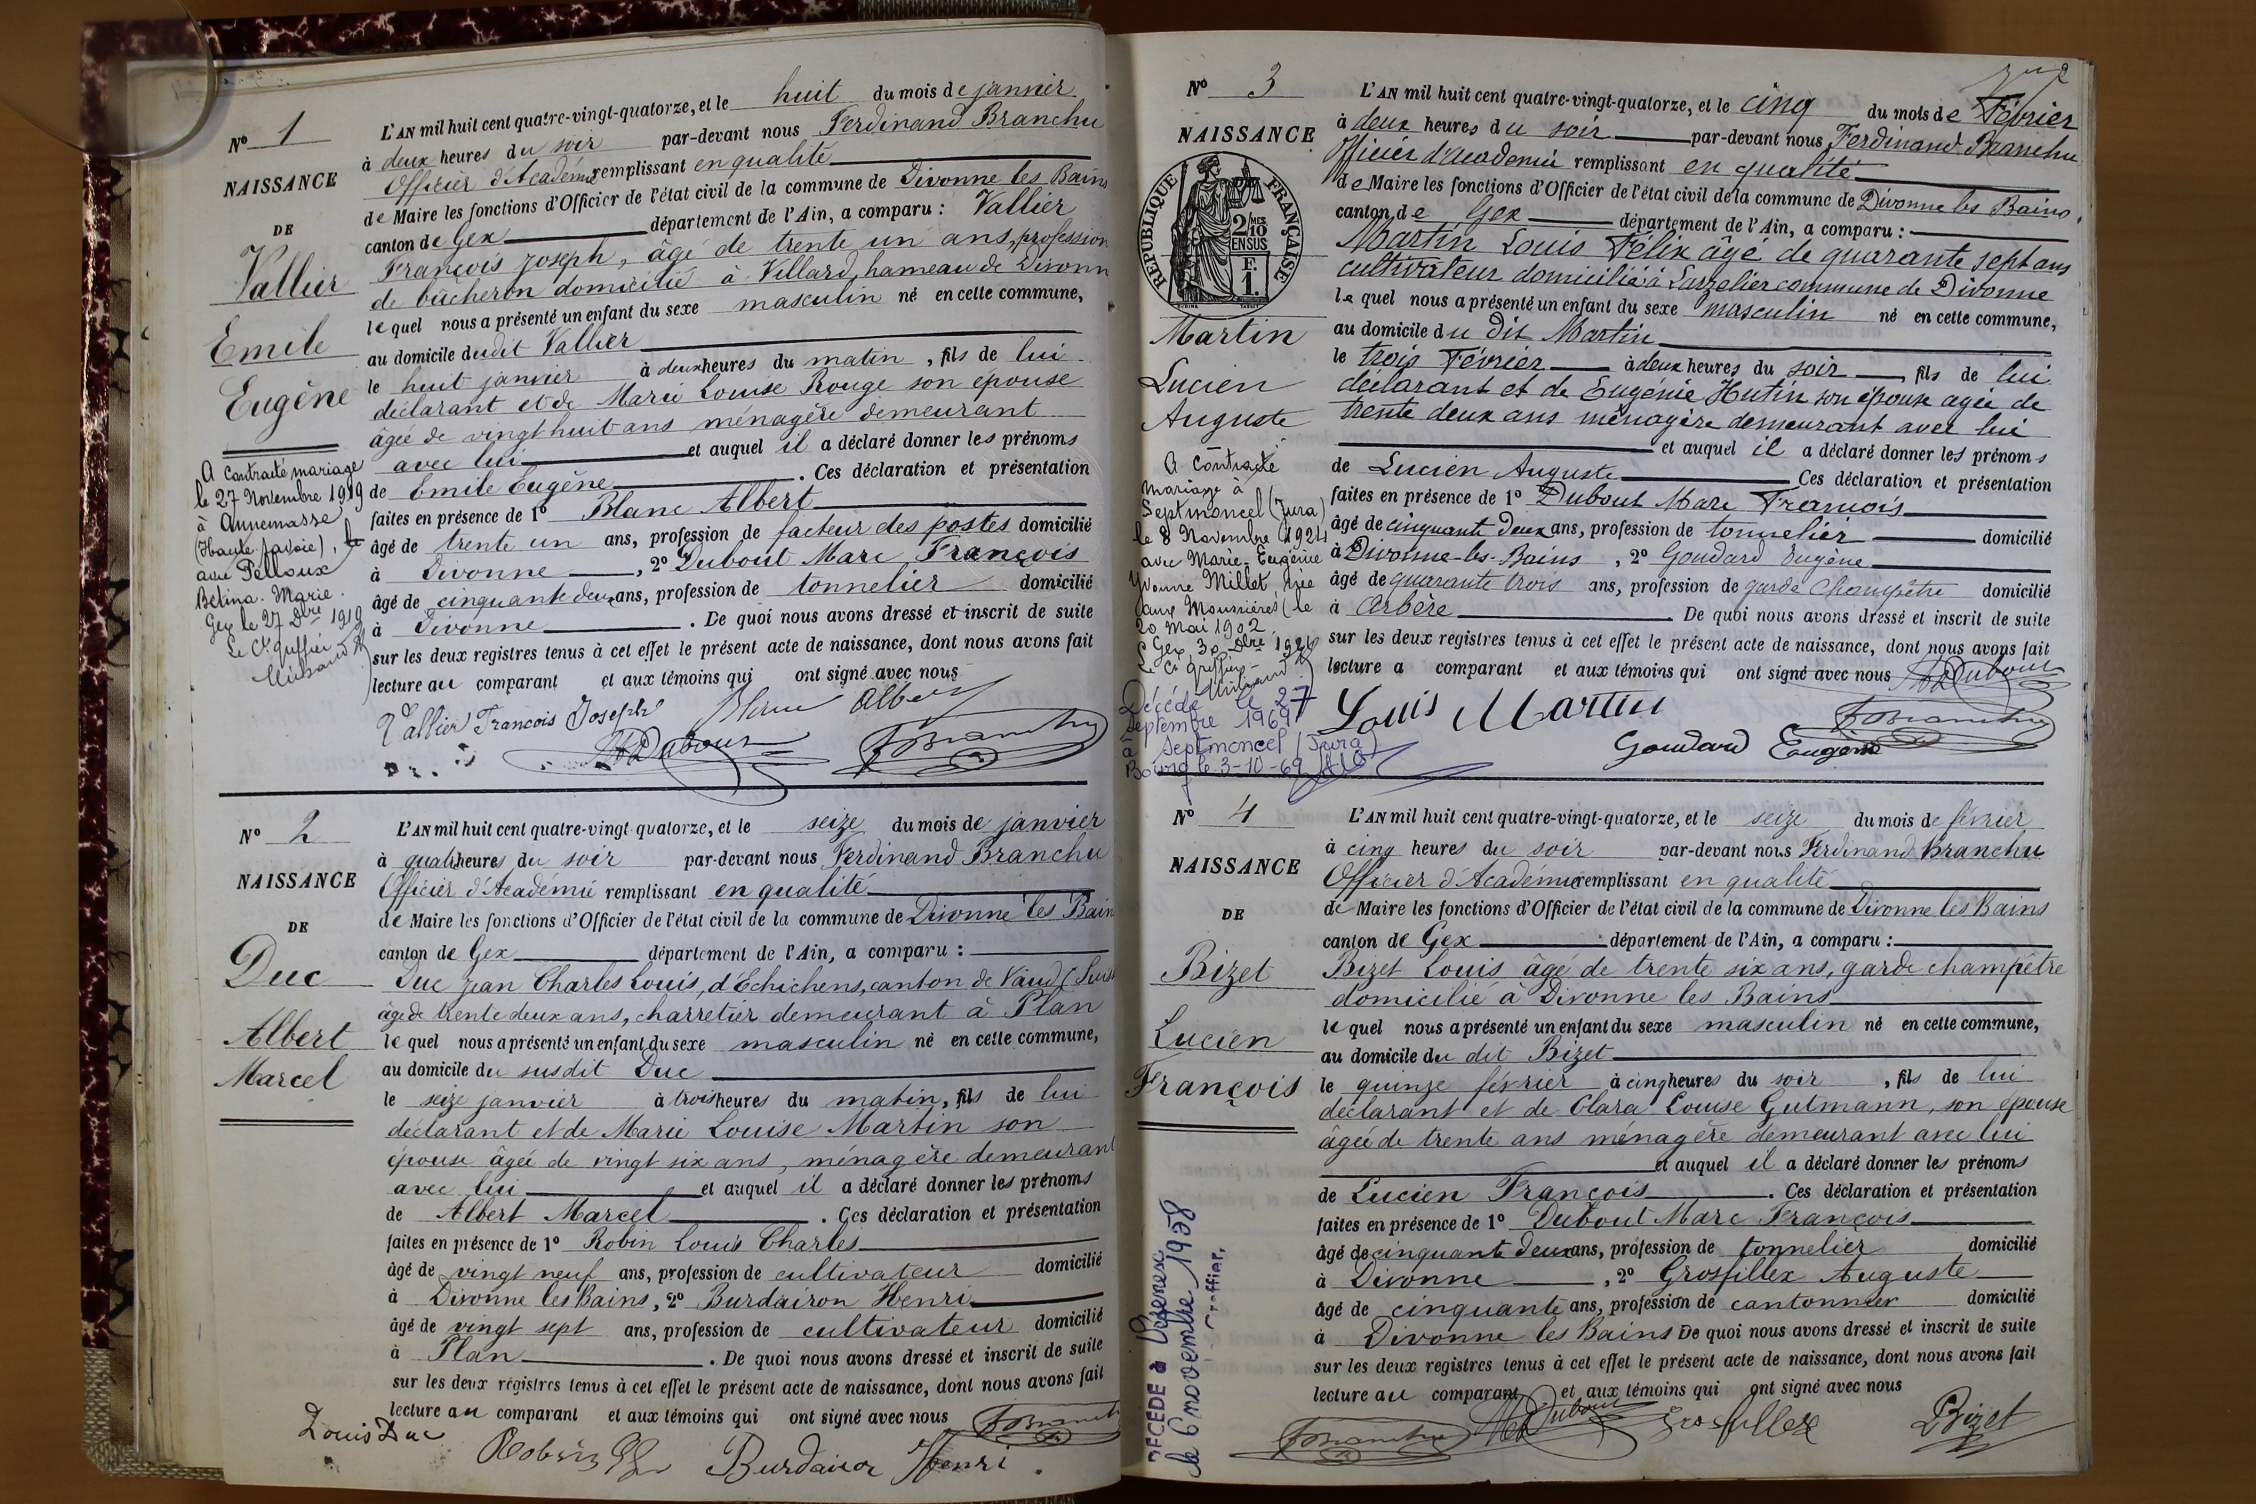 N° 1
NAISSANCE
DE
Vallier
Emile
Eugène
A contracté mariage
le 27 Novembre 1919
à Annemasse
(Haute Savoie),
avec Pelloux
Betina. Marie.
Gex le 27 Dbre 1919
Le Cs greffier
L'AN mil huit cent quatre-vingt-quatorze, et le huit du mois de janvier
à deux heures du soir par-devant nous Ferdinand Branchu
Officier d'Académie remplissant en qualité
de Maire les fonctions d'Officier de l'état civil de la commune de Divonne les Bains
canton de Gex département de l'Ain, a comparu : Vallier
François Joseph, âgé de trente un ans, profession
de bûcheron domicilié à Villard, hameau de Divonne
lequel nous a présenté un enfant du sexe masculin né en cette commune,
au domicile dudit Vallier
le huit janvier à deux heures du matin, fils de lui
déclarant et de Marie Louise Rouge son épouse
âgée de vingt huit ans ménagère demeurant
avec lui et auquel il a déclaré donner les prénoms
de Emile Eugène. Ces déclaration et présentation
faites en présence de 1° Blanc Albert
âgé de trente un ans, profession de facteur des postes domicilié
à Divonne, 2° Dubout Marc François
âgé de cinquante deux ans, profession de tonnelier domicilié
à Divonne. De quoi nous avons dressé et inscrit de suite
sur les deux registres tenus à cet effet le présent acte de naissance, dont nous avons fait
lecture au comparant et aux témoins qui ont signé avec nous
Vallier François Joseph Blanc Albert
Dubout FBranchu
N° 2
NAISSANCE
DE
Duc
Albert
Marcel
L'AN mil huit cent quatre-vingt-quatorze, et le seize du mois de janvier
à quatre heures du soir par-devant nous Ferdinand Branchu
Officier d'Académie remplissant en qualité
de Maire les fonctions d'Officier de l'état civil de la commune de Divonne les Bain
canton de Gex département de l'Ain, a comparu :
Duc Jean Charles Louis, d'Echichens, canton de Vaud (Suisse
âgé de trente deux ans, charretier demeurant à Plan
lequel nous a présenté un enfant du sexe masculin né en cette commune,
au domicile du susdit Duc
le seize janvier à trois heures du matin, fils de lui
déclarant et de Marie Louise Martin son
épouse âgée de vingt six ans, ménagère demeurant
avec lui et auquel il a déclaré donner les prénoms
de Albert Marcel. Ces déclaration et présentation
faites en présence de 1° Robin Louis Charles
âgé de vingt neuf ans, profession de cultivateur domicilié
à Divonne les Bains, 2° Burdairon Henri
âgé de vingt sept ans, profession de cultivateur domicilié
à Plan. De quoi nous avons dressé et inscrit de suite
sur les deux registres tenus à cet effet le présent acte de naissance, dont nous avons fait
lecture au comparant et aux témoins qui ont signé avec nous
FBranchu
Louis Duc
Robin Burdairon Henri
N° 3
NAISSANCE
RÉPUBLIQUE FRANÇAISE
2/10 MES
EN SUS
F.
1.
Martin
Lucien
Auguste
A contracté
mariage à
Septmoncel (Jura)
le 8 Novembre 1924
avec Marie-Eugénie
Yvonne Millet, née
aux Moussières le
20 Mai 1902.
Gex, 30 Dbre 1924
Le Cs greffier
Décédé le 27
septembre 1969
à Septmoncel (Jura)
Bourg le 3-10-69
L'AN mil huit cent quatre-vingt-quatorze, et le cinq du mois de Février
à deux heures du soir par-devant nous Ferdinand Branchu
Officier d'Academie remplissant en qualité
de Maire les fonctions d'Officier de l'état civil de la commune de Divonne les Bains.
canton de Gex département de l'Ain, a comparu :
Martin Louis Félix âgé de quarante sept ans
cultivateur domicilié à Larzelier commune de Divonne
lequel nous a présenté un enfant du sexe masculin né en cette commune,
au domicile du dit Martin
le trois Février à deux heures du soir, fils de lui
déclarant et de Eugénie Hutin son épouse agée de
trente deux ans ménagère demeurant avec lui
et auquel il a déclaré donner les prénoms
de Lucien Auguste Ces déclaration et présentation
faites en présence de 1° Dubout Marc François
âgé de cinquante deux ans, profession de tonnelier domicilié
à Divonne-les-Bains, 2° Goudard Eugène
âgé de quarante trois ans, profession de garde Champêtre domicilié
à Arbère. De quoi nous avons dressé et inscrit de suite
sur les deux registres tenus à cet effet le présent acte de naissance, dont nous avons fait
lecture a comparant et aux témoins qui ont signé avec nous Dubout
Louis Martin FBranchu
Goudard Eugène
N° 4
NAISSANCE
DE
Bizet
Lucien
François
DÉCÉDÉ à
le 6 novembre 1958
Greffier,
L'AN mil huit cent quatre-vingt-quatorze, et le seize du mois de février
à cinq heures du soir par-devant nous Ferdinand Branchu
Officier d'Academie remplissant en qualité
de Maire les fonctions d'Officier de l'état civil de la commune de Divonne les Bains
canton de Gex département de l'Ain, a comparu :
Bizet Louis âgé de trente six ans, garde champêtre
domicilié à Divonne les Bains
lequel nous a présenté un enfant du sexe masculin né en cette commune,
au domicile du dit Bizet
le quinze février à cinq heures du soir, fils de lui
déclarant et de Clara Louise Gutmann, son épouse
âgée de trente ans ménagère demeurant avec lui
et auquel il a déclaré donner les prénoms
de Lucien François. Ces déclaration et présentation
faites en présence de 1° Dubout Marc François
âgé de cinquante deux ans, profession de tonnelier domicilié
à Divonne, 2° Grosfillex Auguste
âgé de cinquante ans, profession de cantonnier domicilié
à Divonne les Bains De quoi nous avons dressé et inscrit de suite
sur les deux registres tenus à cet effet le présent acte de naissance, dont nous avons fait
lecture au comparant et aux témoins qui ont signé avec nous
FBranchu Dubout Grosfillex Bizet